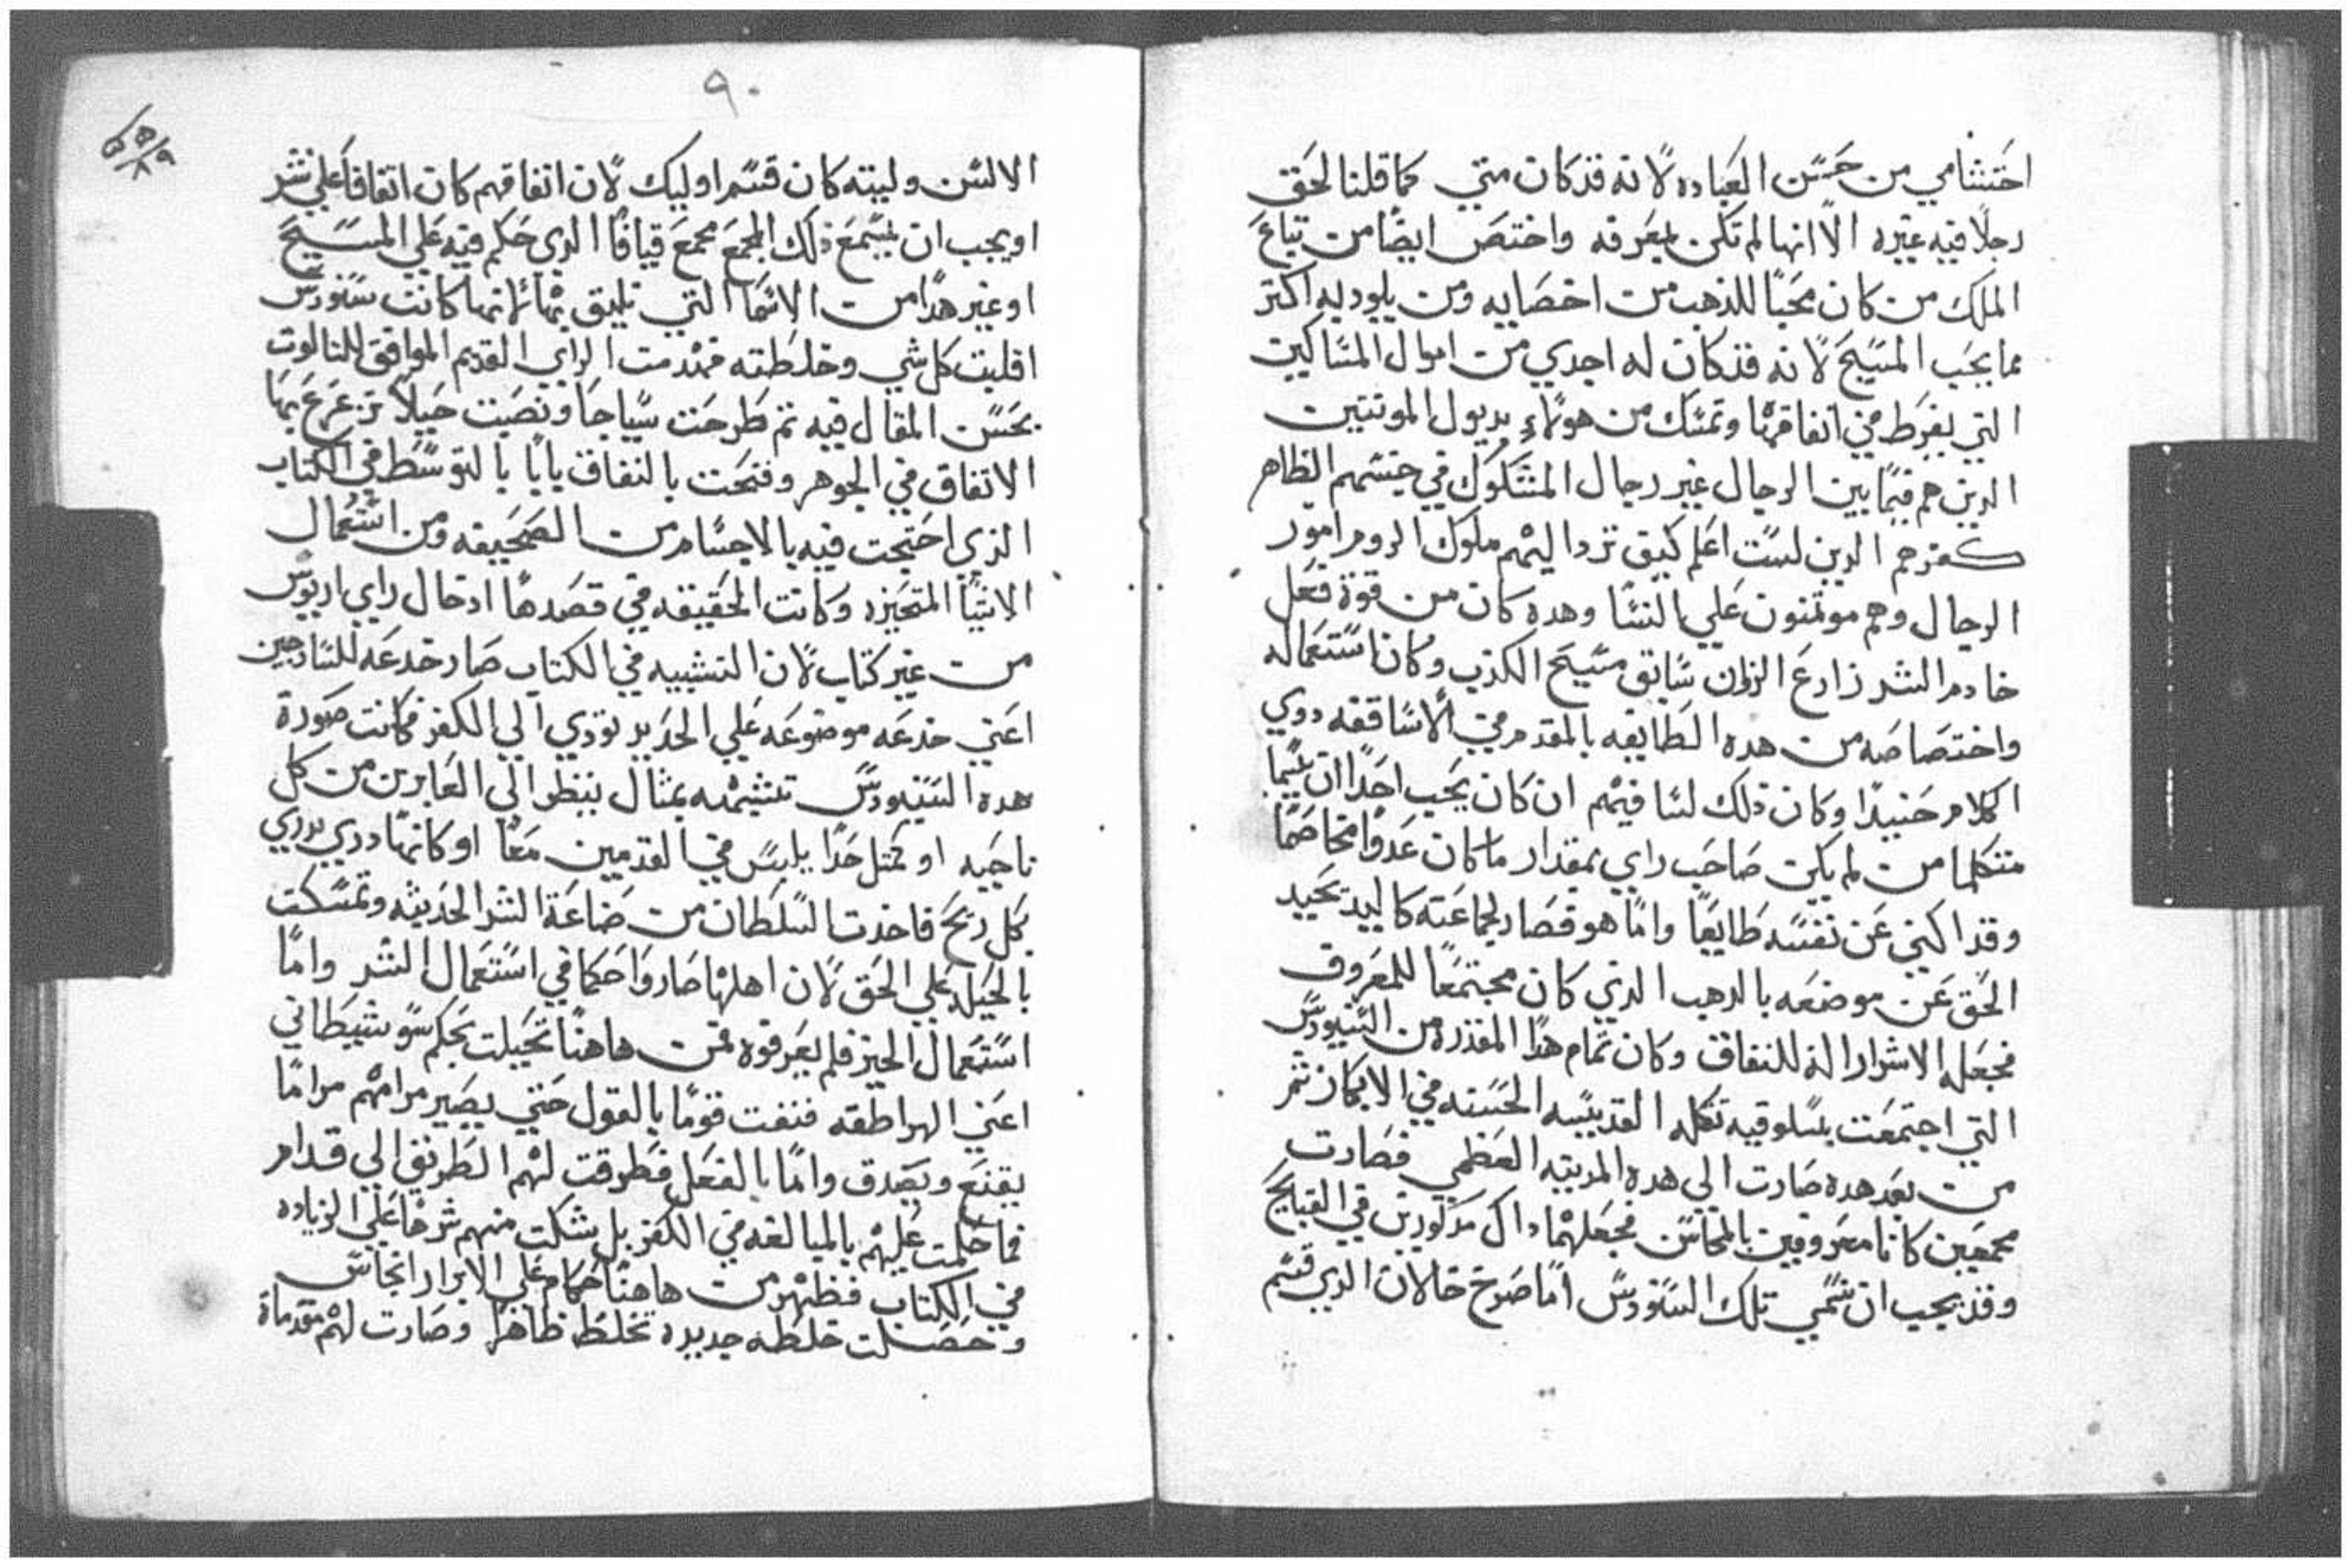 احتشامي من حسن العباده لانه قد كان متي كما قلنا لحق
رجلا فيه غيره الا انها لم تكن بمعرفه واختص ايضا من تباع
الملك من كان محبا للذهب من اخصايه ومن يلود به اكتر
مما يجب المسيح لانه قد كان له اجدي من اموال المساكين
التي يفرط في انفاقها وتمسك من هولاء بديول الموننين
الدين هم فيما بين الرجال غير رجال المشكوك في جنسهم الظاهر
كفرهم الدين لست اعلم كيف تردا ليهم ملوك الروم امور
الرجال وهم موتمنون علي النسا وهده كان من قوة فعل
خادم الشر زارع الزوان سابق مسيح الكذب وكان استعماله
واختصاصه من هده الطايفه بالمقدم من الاساقفه دوي
الكلام حنيدا وكان ذلك لسا فيهم ان كان يجب احدا ان يسما
متكلما من لم يكن صاحب راي بمقدار ما كان عدوا مخاصما
وقد اكني عن نفسه طايعا واما هو فصار لجماعته كاليد يحيد
الحق عن موضعه بالدهب الدي كان مجتمعا للمعروف
فجعله الاشرار اله للنفاق وكان تمام هدا المقدره من السنيودس
التي اجتمعت بسلوقيه تكله القديسه الحسنه في الابكار ثم
من بعد هده صارت الي هده المدينه العظمي فصارت
مجمعين كانا معروفين بالمحاسن فجعلهما داك مدكورين في القبايح
وقد يجب ان تسمي تلك السنودس اما صرح خالان الدي قسم
٩٠
الالسن وليته كان قسم اوليك لان اتفاقهم كان اتفاقا علي شر
او يجب ان يسمع ذلك المجمع مجمع قيافا الدي حكم فيه علي المسيح
او غير هدا من الاسما التي تليق بها لانها كانت سنودس
اقلبت كل شي وخلطته فهدمت الراي القديم الموافق للتالوت
بحسن المقال فيه تم طرحت سياجا ونصبت حيلا تزعزع بها
الاتفاق في الجوهر وفتحت بالنفاق بابا بالتوسط في الكتاب
الذي احتيجت فيه بالاحتسام من الصحيفه ومن استعمال
الاشيا المتحيزه وكانت الحقيقه في قصدها ادخال راي اريوس
من غير كتاب لان التشبيه في الكتاب صار خدعه للسادجين
اعني خدعه موضوعه علي الحديد تودي الي الكفر فكانت صورة
هده السنيودس تتشبه بمثال ينظر الي العابرين من كل
ناحيه او كمتل حدا يلبس في القدمين معا او كانها دري يدري
بكل ريح فاخدت السلطان من صناعة الشر الحديثه وتمسكت
بالحيله علي الحق لان اهلها صاروا حكما في استعمال الشر واما
استعمال الخير فلم يعرفوه فمن هاهنا تحيلت بحكم سو شيطاني
اعني الهراطقه فنفت قوما بالقول حتي يصير مرامهم مراما
يقنع ويصدق واما بالفعل فطرقت لهم الطريق الي قدام
فما حكمت عليهم بالمبالغه في الكفر بل شكت منهم شرحا علي الزياده
في الكتاب فظهر من هاهنا حكام علي الابرار انجاس
وحصلت خلطه جديده تخلط ظاهرا وصارت لهم مقدماة